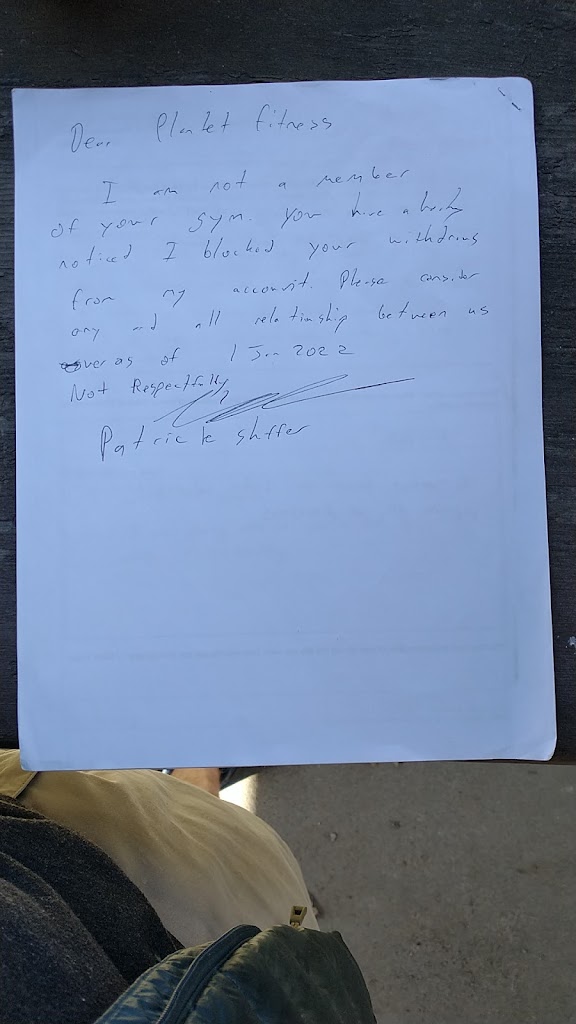 Dear Planet fitness
I am not a member
of your gym. You have already
noticed I blocked your withdraws
from my account. Please consider
any and all relationship between us
over as of 1 Jan 2022
Not Respectfully
Patrick Shffer